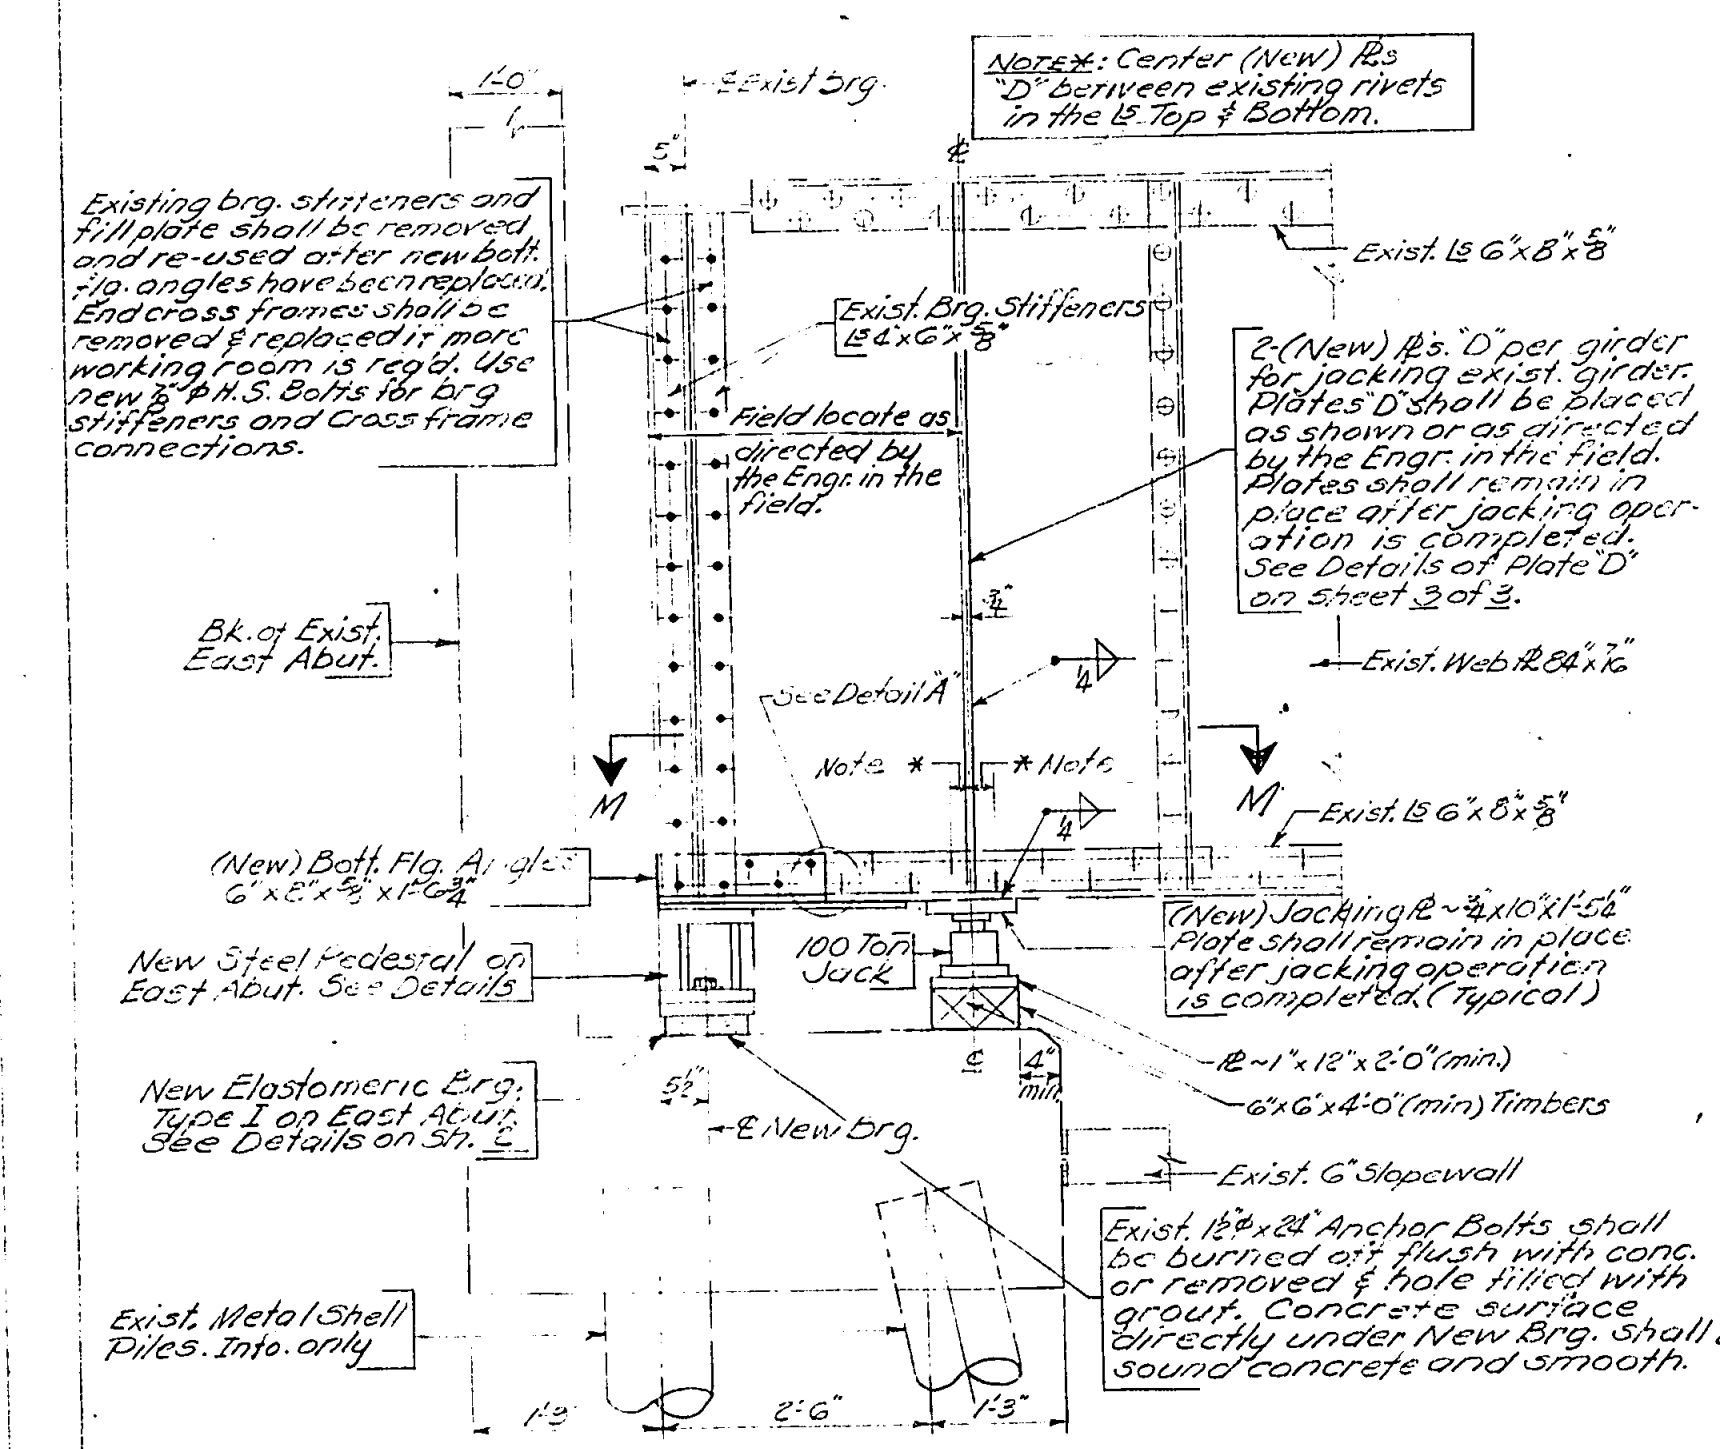 1'-0"
℄ Exist brg.
NOTE*: Center (New) ℞s
"D" between existing rivets
in the Ls Top & Bottom.
5"
℄
Existing brg. stiffeners and
fill plate shall be removed
and re-used after new bott.
flg. angles have been replaced.
End cross frames shall be
removed & replaced if more
working room is req'd. Use
new 7/8" φ H.S. Bolts for brg
stiffeners and Cross frame
connections.
Exist. Ls 6" x 8" x 5/8"
Exist. Brg. Stiffeners
Ls 4" x 6" x 5/8"
2-(New) ℞s. "D" per girder
for jacking exist. girder.
Plates "D" shall be placed
as shown or as directed
by the Engr. in the field.
Plates shall remain in
place after jacking oper-
ation is completed.
See Details of Plate "D"
on sheet 3 of 3.
Field locate as
directed by
the Engr. in the
field.
3/4"
Bk. of Exist.
East Abut.
Exist. Web ℞ 84" x 7/16"
1/4
See Detail "A"
Note *
* Note
M
M
1/4
Exist. Ls 6" x 8" x 5/8"
(New) Bott. Flg. Angles
6" x 8" x 5/8" x 1'-6 3/4"
(New) Jacking ℞ ~ 3/4 x 10" x 1'-5 1/4"
Plate shall remain in place
after jacking operation
is completed. (Typical)
New Steel Pedestal on
East Abut. See Details
100 Ton
Jack
℞ ~ 1" x 12" x 2'-0" (min.)
6" x 6" x 4'-0" (min) Timbers
℄
4"
min.
New Elastomeric Brg.
Type I on East Abut.
See Details on Sh.
5 1/2"
℄ New brg.
Exist. 6" Slopewall
Exist. 1 1/2" φ x 24" Anchor Bolts shall
be burned off flush with conc.
or removed & hole filled with
grout. Concrete surface
directly under New Brg. shall
sound concrete and smooth.
Exist. Metal Shell
Piles. Info. only
1'-9"
2'-6"
1'-3"